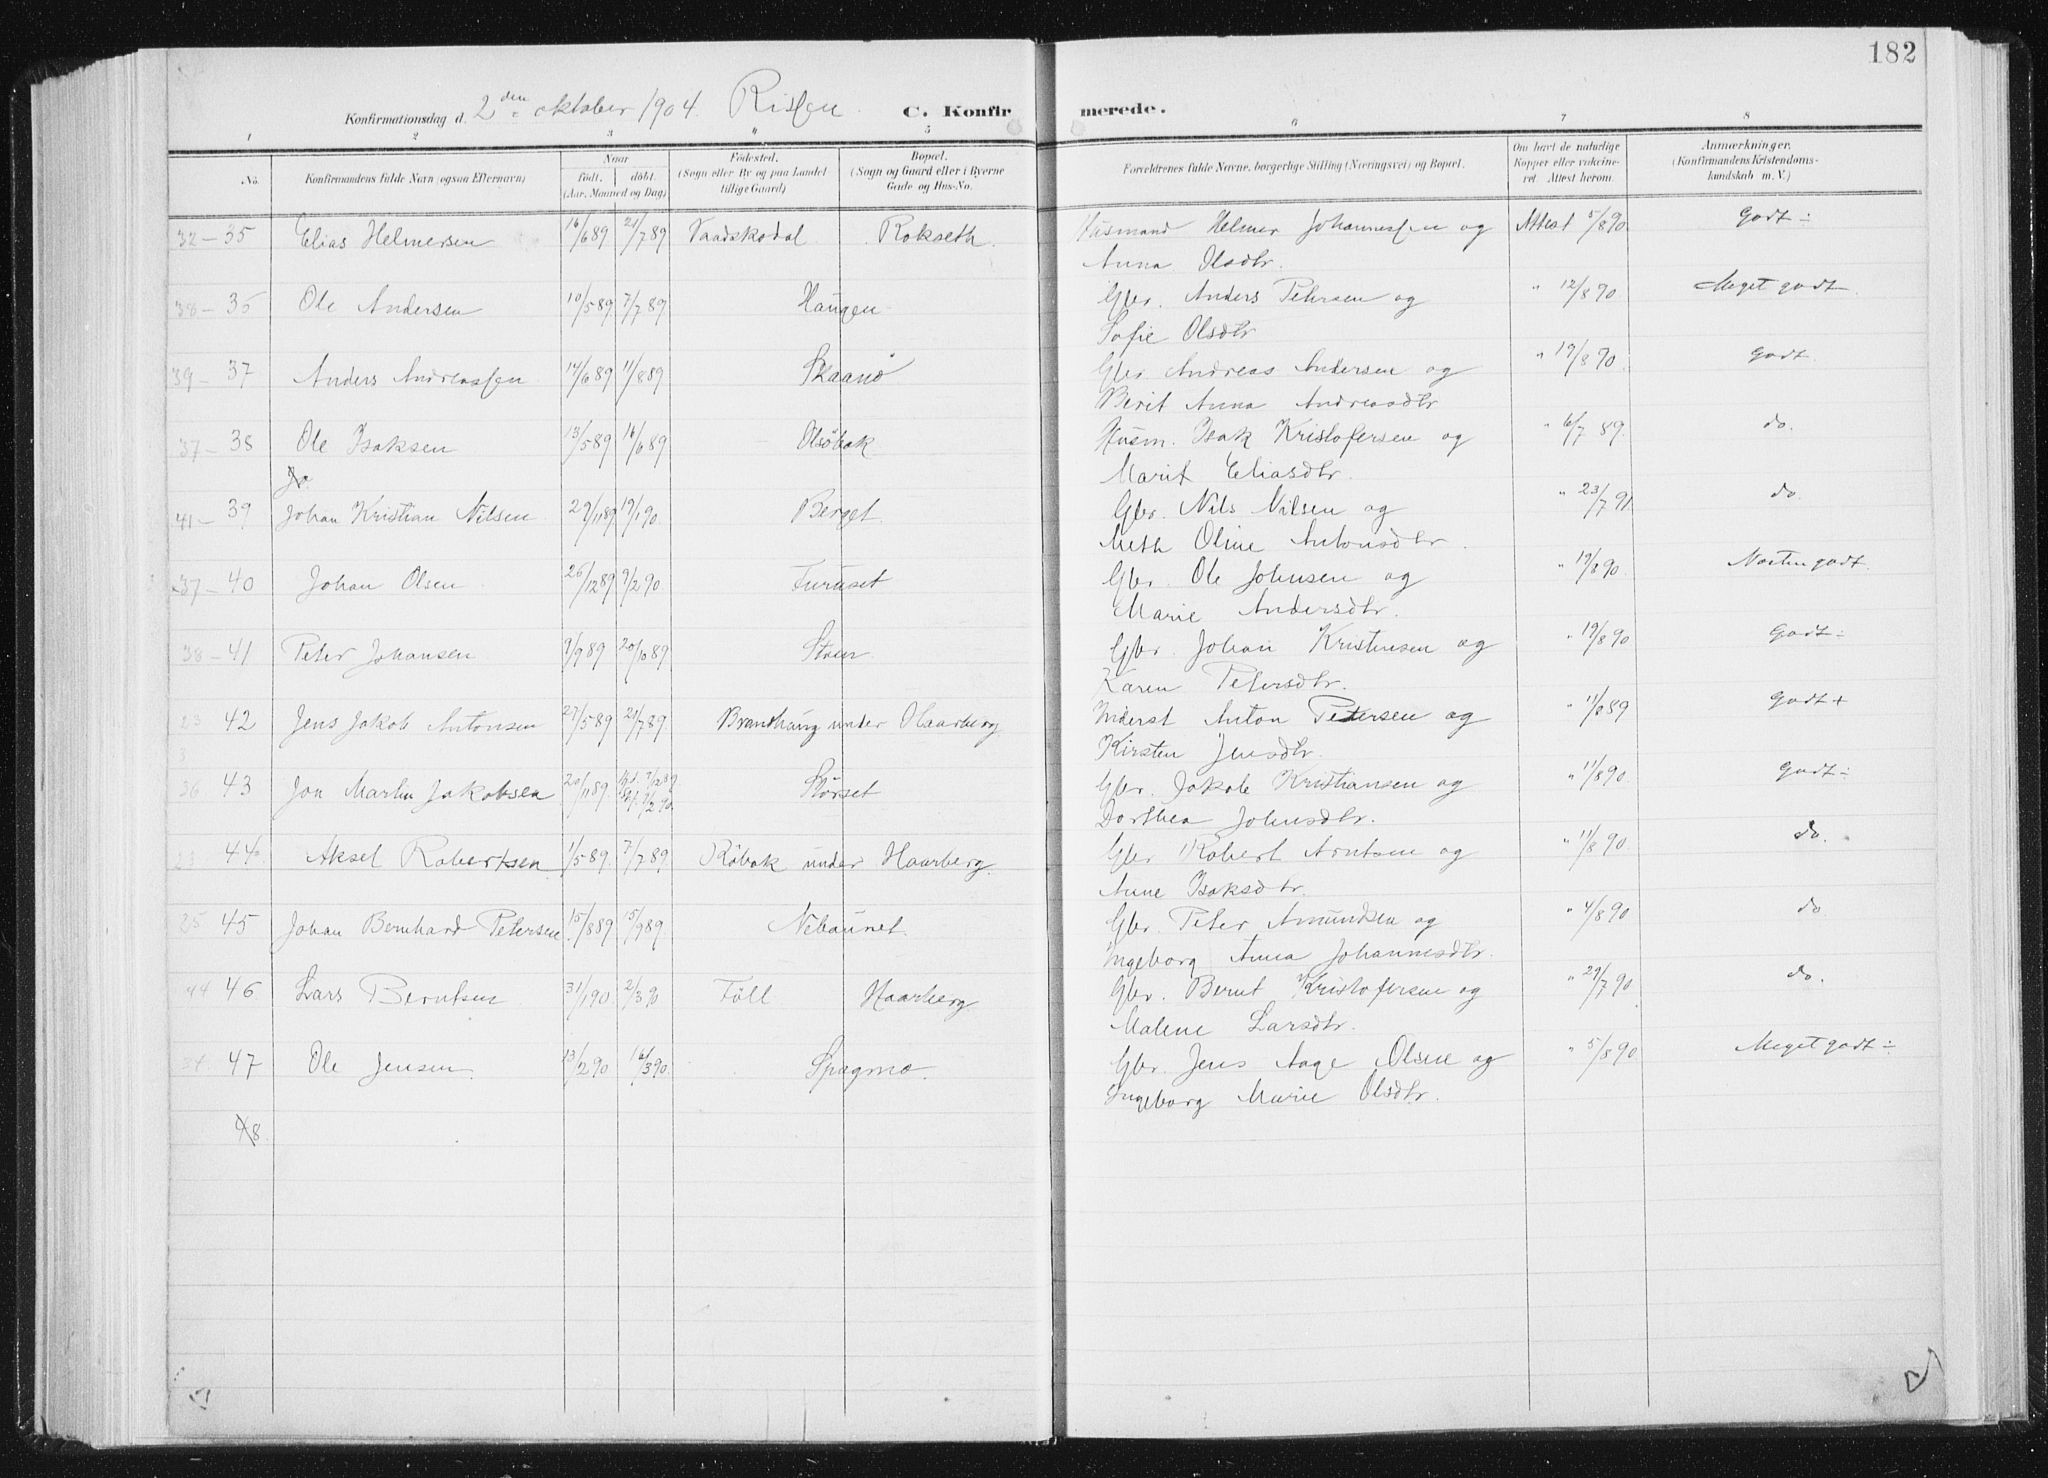 182
Konfirmationsdag d. 2den oktober 1904. Rissen C. Konfirmerede.
1 2 3 " 5 6 7 8
No.
Konfirmandens fulde Navn (ogsaa Efternavn)
Naar
födt. döbt.
(Aar, Maaned og Dag)
Födested.
(Sogn eller By og paa Landet tillige Gaard)
Bopæl.
(Sogn og Gaard eller i Byerne Gade og Hus-No.
Forældrenes fulde Navne, borgerlige Stilling (Næringsvei) og Bopæl.
Om havt de naturlige Kopper eller vakcineret. Attest herom.
Anmærkninger.
(Konfirmandens Kristendomskundskab m. V.)
32 - 35 Elias Helmersen 16/6 89 21/7 89 Vaadskodal Rokseth. Husmand Helmer Johannessen og Attest 5/8 90 Godt ÷
Anna Olsdtr.
38 - 36 Ole Andersen 10/5 89 7/7 89 Haugen Gbr. Anders Petersen og " 12/8 90 Meget godt
Sofie Olsdtr
39 - 37 Anders Andreassen 14/6 89 11/8 89 Skaanö Gbr. Andreas Andersen og " 19/8 90 Godt.
Berit Anna Andreasdtr
37 - 38 Ole Isaksen 13/5 89 16/6 89 Olsöbak Husm. Isak Kristofersen og " 6/7 89. do.
Marit Eliasdtr.
Jo
41 - 39 Johan Kristian Nilsen 29/11 89 19/1 90. Berget Gbr. Nils Nilsen og " 23/7 91 do.
Meth Oline Antonsdtr.
37 - 40 Johan Olsen 26/12 89 9/2 90. Furuset Gbr. Ole Johnsen og " 19/8 90. Næsten godt.
Marie Andersdtr.
38 - 41 Peter Johansen 9/9 89 20/10 89 Støen Gbr. Johan Kristensen og " 19/8 90 Godt ÷
Karen Petersdtr.
23 42 Jens Jakob Antonsen 27/5 89 21/7 89 Brandhaug under Haarberg Inderst Anton Petersen og " 11/8 89 Godt +
Kirsten Jensdtr.
36 43 Jon Martin Jakobsen 20/11 89. Störset Gbr. Jakob Kristiansen og " 11/8 90. Godt ÷
Dorthea Johnsdtr.
44 Aksel Robertsen 1/5 89. 7/7 89. Röbak under Haarberg. Gbr Robert Arntsen og " 11/8 90. do.
Anne Isaksdtr.
25 45 Johan Bernhard Petersen 15/8 89 15/9 89. Nebaunet. Gbr. Peter Amundsen og " 4/8 90 do
Ingeborg Anna Johannesdtr.
44 46 Lars Berntsen 31/1 90. 2/3 90 Föll Haarberg Gbr. Bernt Kristofersen og " 29/7 90. do.
Malene Larsdtr.
34 47 Ole Jensen. 13/2 90 16/3 90. Spagmo. Gbr. Jens Aage Olsen og " 5/8 90 Meget godt ÷
Ingeborg Marie Olsdtr.
48.